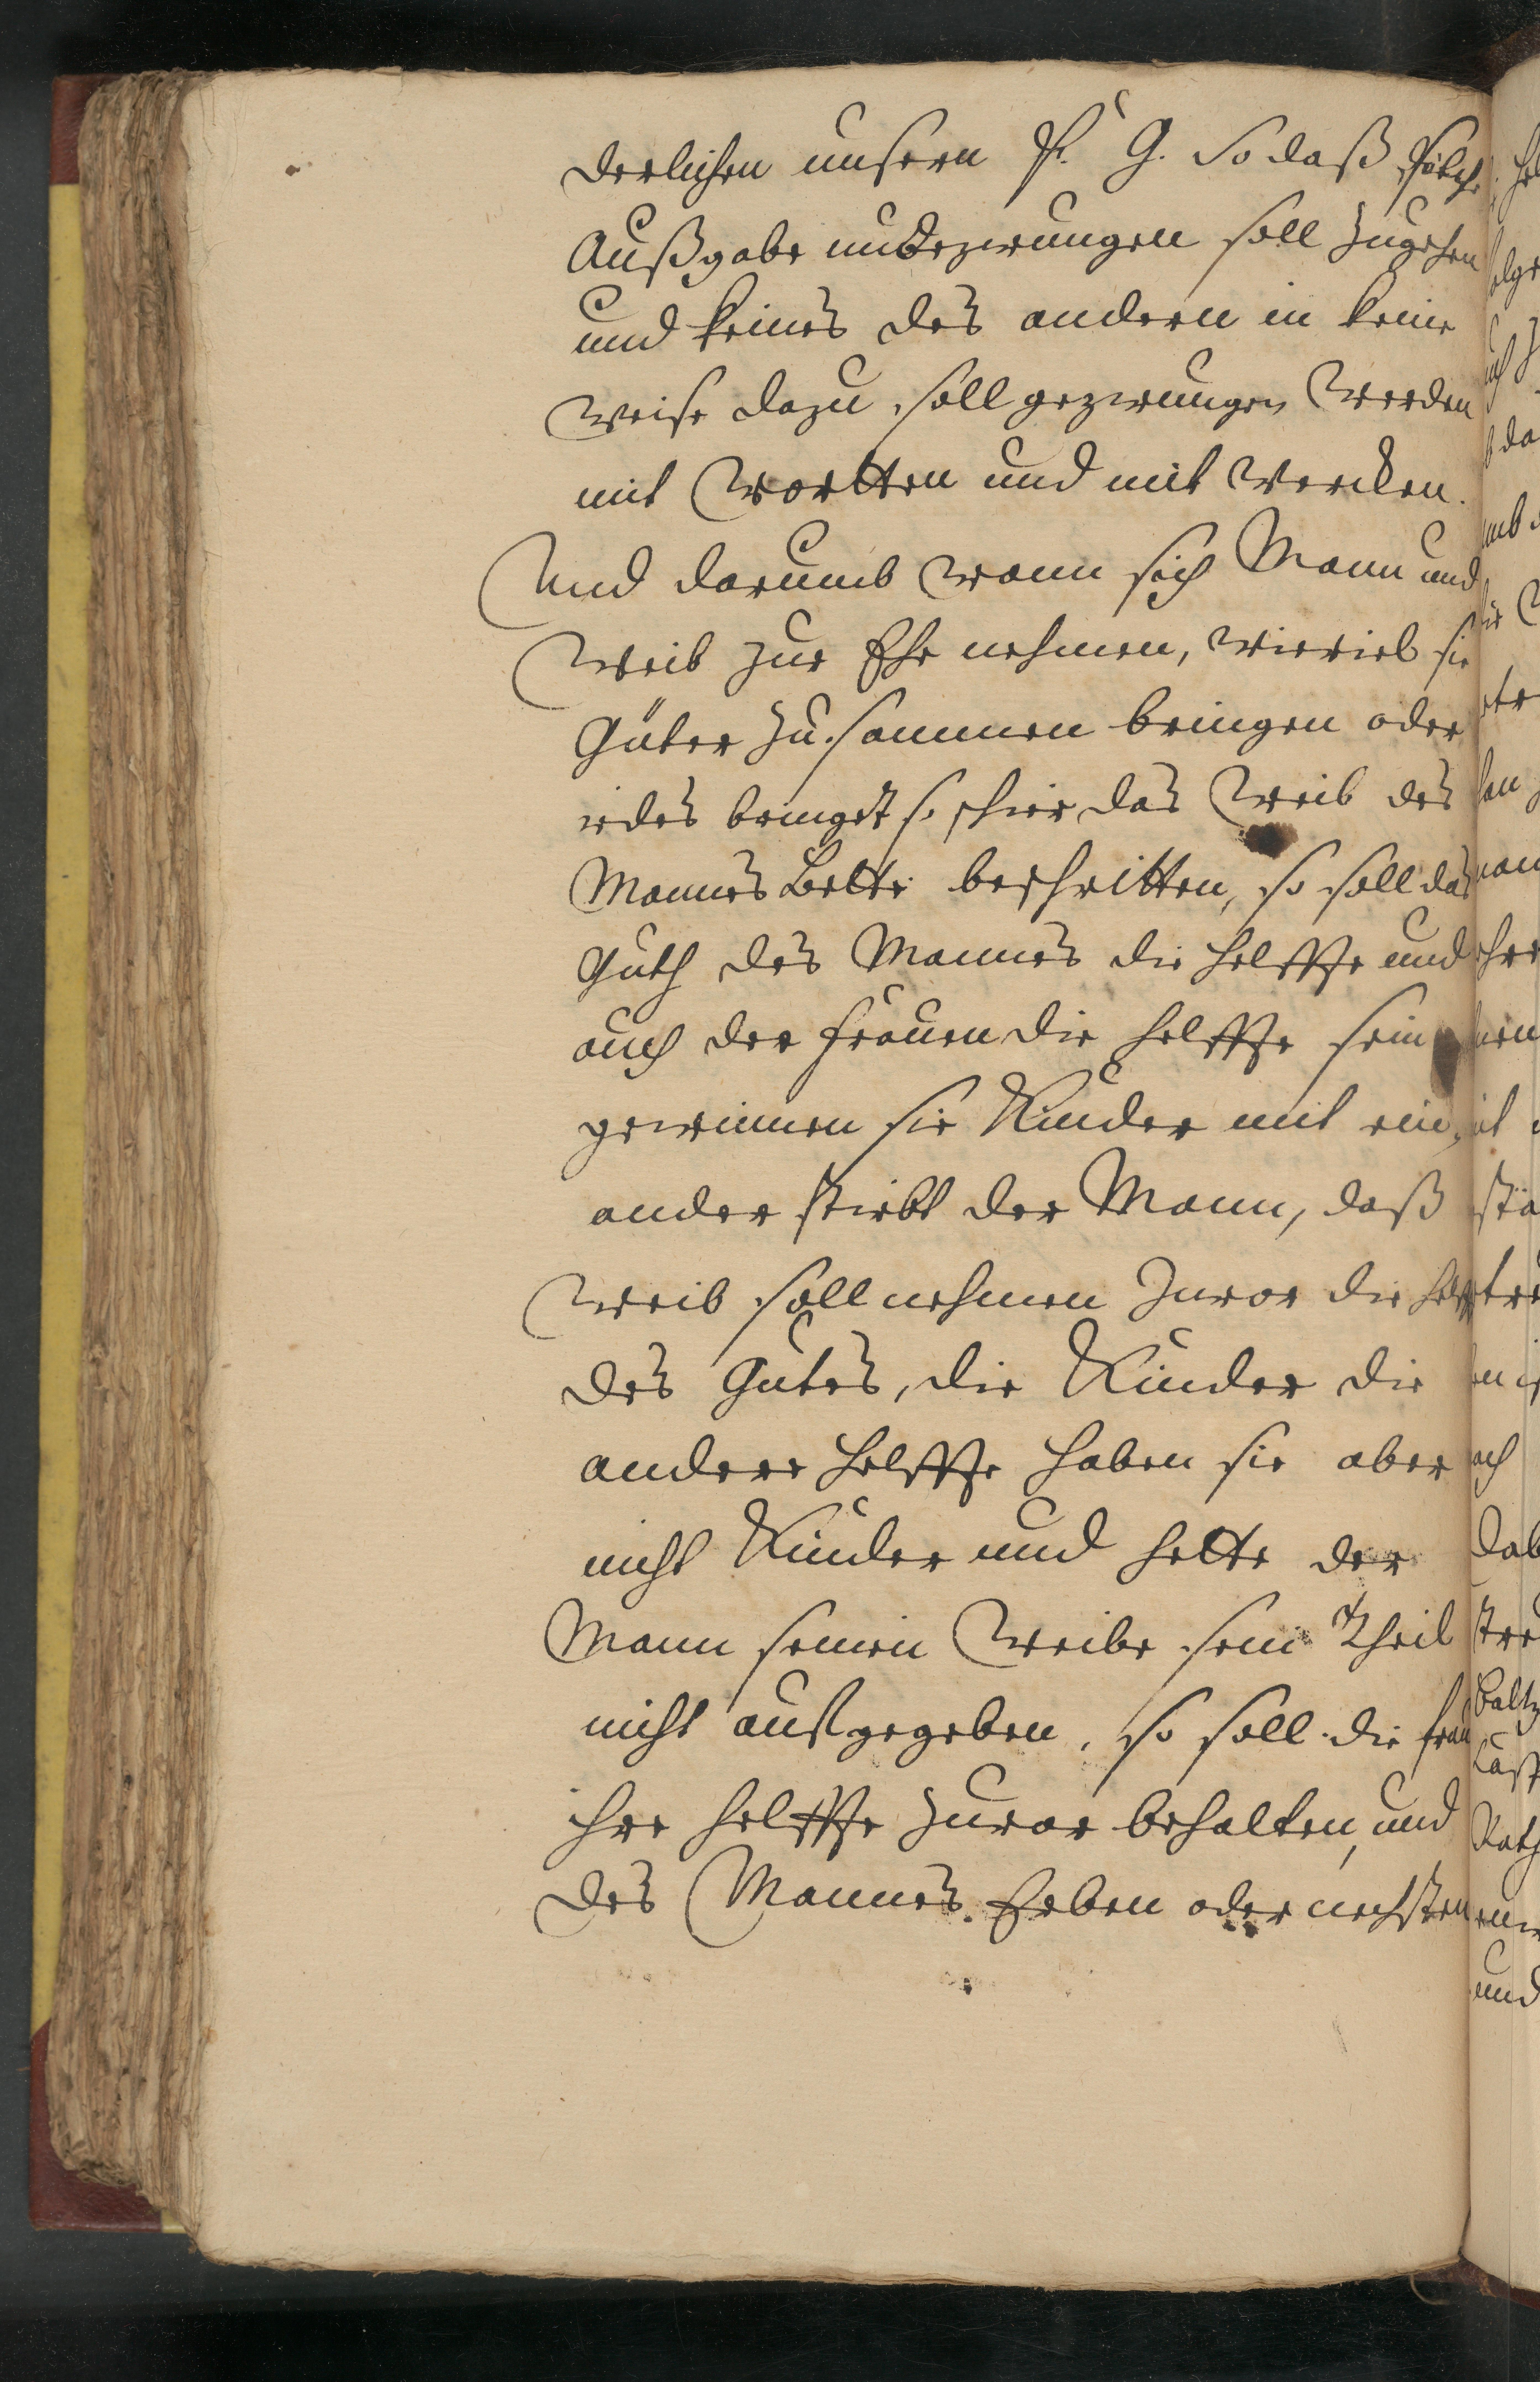 derlichen unsern H. G. So daß solche
Außgabe unbezwungen soll zugehen
und keines des andern in keine
weise dazu soll gezwungen werden
mit wortten und mit wercken.
Und darumb wann sich Mann und
Weib zur Ehe nehmen, wieviel sie
Güter zusammen bringen oder
iedes bringet so schier das Weib des
Mannes Bette beschritten, so soll das
Guth des Mannes die helffte und
auch der frauen die helffte sein
gewinnen sie Kinder mit ein,
ander stirbt der Mann, daß
Weib soll nehmen zuvor die helffte
des Gutes, die Kinder die
andere helffte haben sie aber
nicht Kinder und hette der
Mann seinen Weibe sein Theil
nicht außgegeben, so soll die frau
ihre helffte zuvor behalten, und
des Mannes Erben oder nechsten